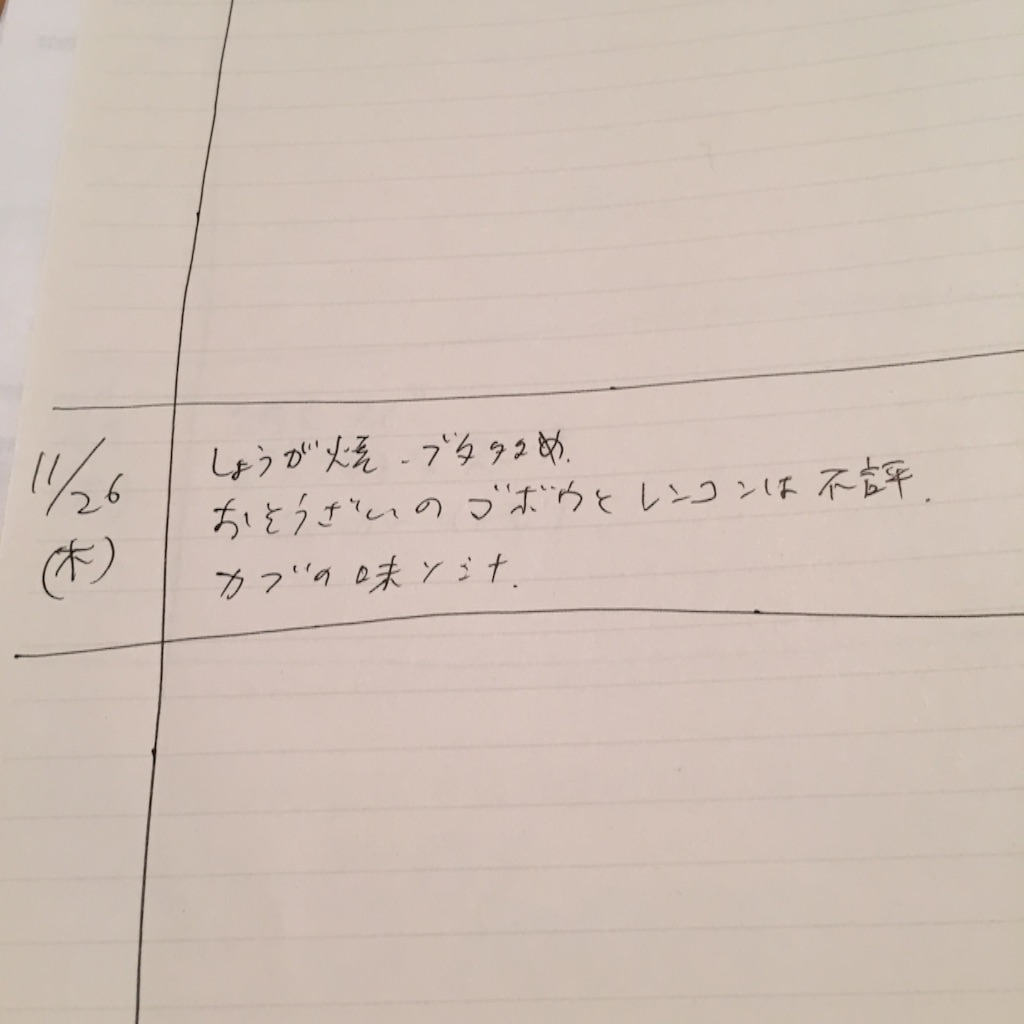 11/26
(木)
しょうが焼.ブタ多め.
おそうざいのゴボウとレンコンは不評.
カブの味ソ汁.